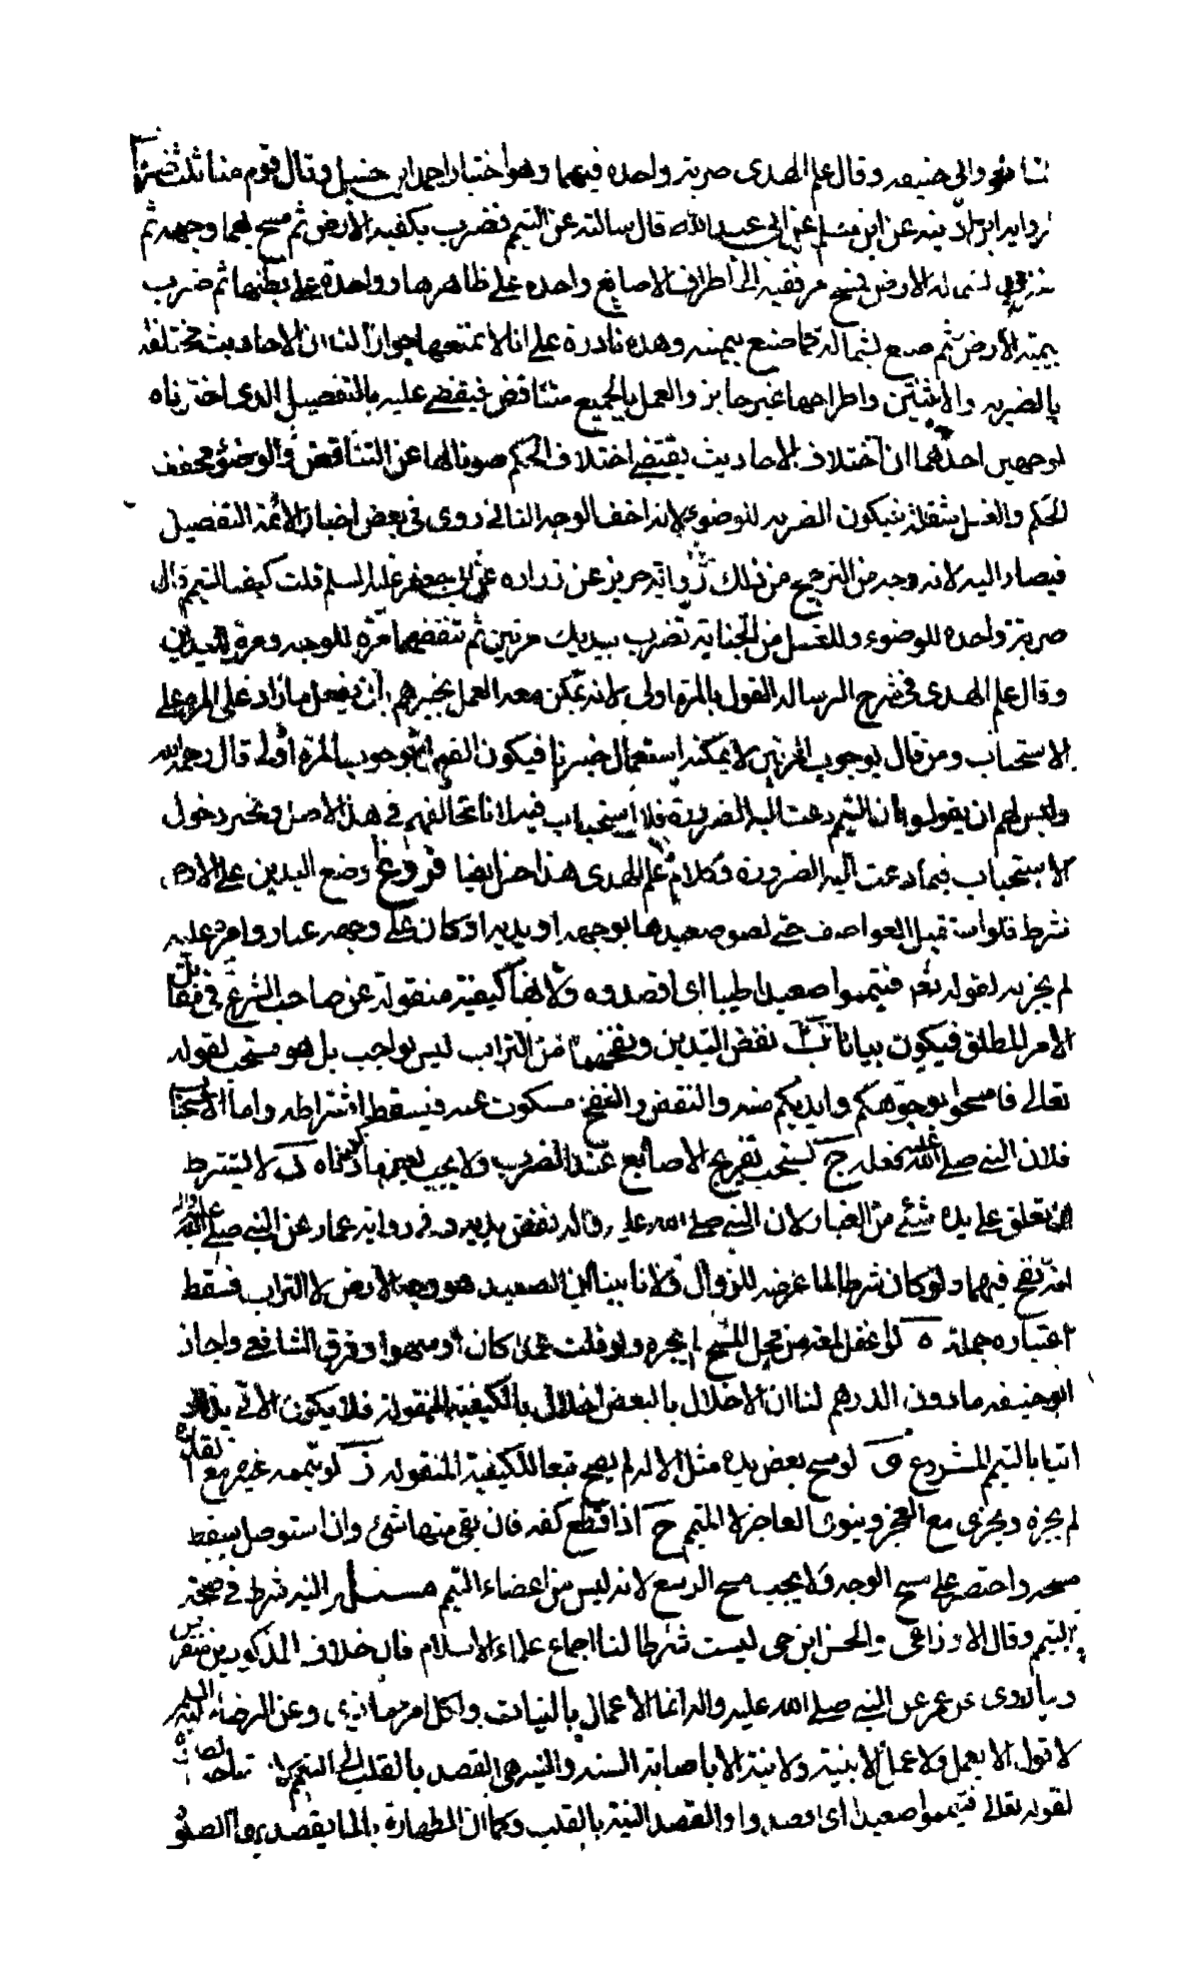 الشافعي وابى حنيفه وقال علم الهدى ضربة واحده فيهما وهو اختيار احمد ابن حنبل وقال قوم منا ثلث ضربات
لرواية ابن اذينه عن ابن مسلم عن ابى عبد الله قال سالته عن التيمم فضرب بكفيه الارض ثم مسح بهما وجهه ثم
ضرب بشماله الارض فمسح مرفقيه الى اطراف الاصابع واحده على ظاهرها وواحدة على بطنها ثم ضرب
بيمينه الارض ثم صنع بشماله كما صنع بيمينه وهذه نادرة على انا لا نمنعها جوازا لنا ان الاحاديث مختلفة
بالضربه والاثنتين واطراحها غير جايز والعمل بالجميع متناقض فيقضى عليه بالتفصيل الذى اخترناه
لوجهين احدهما ان اختلاف الاحاديث يقتضى اختلاف الحكم صونا لها عن التناقض والوضوء مخفف
الحكم والغسل مثقله فيكون الضربه للوضوء لانه اخف الوجه الثانى روى فى بعض اخبار الائمة التفصيل
فيصار اليه لانه وجه من الترجيح من ذلك رواية حريز عن زراره عن ابى جعفر عليه السلم قلت كيف التيمم قال
ضربة واحده للوضوء وللغسل من الجنابة تضرب بيديك مرتين ثم تنفضهما مرة للوجه ومرة لليدين
وقال علم الهدى فى شرح الرساله القول بالمرة اولى لانه يمكن معه العمل بخبرهم بان يفعل ما زاد على المرة على
الاستحباب ومن قال بوجوب المرتين لا يمكنه استعمال خبرنا فيكون القول بوجوب المرة اولى قال رحمه الله
وليس لهم ان يقولوا ان التيمم دعت اليه الضرورة فلا استحباب فيه لانا نخالفهم فى هذا الاصل ونخير دخول
الاستحباب فيما دعت اليه الضرورة وكلام علم الهدى هذا حسن ايضا فروع آ وضع اليدين على الارض
شرط فلو استقبل العواصف حتى لصق صعيدها بوجهه او يديه او كان على وجهه غبار وامر عليه
لم يجزه لقوله تعالى فتيمموا صعيدا طيبا اى اقصدوه ولانها كيفية منقولة عن صاحب الشرع فى مقابلة
الامر المطلق فيكون بيانا ب نفض اليدين ونفخهما من التراب ليس بواجب بل هو مستحب لقوله
تعالى فامسحوا بوجوهكم وايديكم منه والنفض والنفخ مسكوت عنه فيسقط اشتراطه واما الاستحباب
فلان النبى صلى الله عليه فعله ج يستحب تفريج الاصابع عند الضرب ولا يجب لعين ما ذكرناه د لا يشترط
ان تعلق على يده شئ من الغبار لان النبى صلى الله عليه واله نفض يديه وفى رواية عمار عن النبى صلى الله عليه واله
انه نفخ فيهما ولو كان شرطا لما عرضه للزوال ولانا بينا ان الصعيد هو وجه الارض لا التراب فسقط
اعتباره جملة ه لو اغفل لمعة من محل المسح لم يجزه ولو قلت عمدا كان او سهوا وفرق الشافعى واجاز
ابو حنيفه ما دون الدرهم لنا ان الاخلال بالبعض اخلال بالكيفية المنقولة فلا يكون الاتى بذلك
اتيا بالتيمم المشروع و لو مسح بعض يده مثل الاله لم يصح تبعا للكيفية المنقوله ز لو يممه غيره مع القدرة
لم يجزه ويجزى مع العجز وينوى العاجز لا الميمم ح اذا قطع كفه فان بقى منها شئ وان استوصل سقط
مسحه واختصر على مسح الوجه ولا يجب مسح الرسغ لانه ليس من اعضاء التيمم مسئلة النية شرط فى صحة
التيمم وقال الاوزاعى والحسن ابن حى ليست شرطا لنا اجماع علماء الاسلام فان خلاف المذكورين منقرض
وبما روى عن عمر عن النبى صلى الله عليه واله انما الاعمال بالنيات ولكل امرء ما نوى وعن الرضا عليه السلم
لا قول الا بعمل ولا عمل الا بنية ولا نية الا باصابة السنه والنيه هى القصد بالقلب الى التيمم
لقوله تعالى فتيمموا صعيدا اى اقصدوا والقصد النية بالقلب وكما ان الطهارة بالماء يقصد بها الصلوة